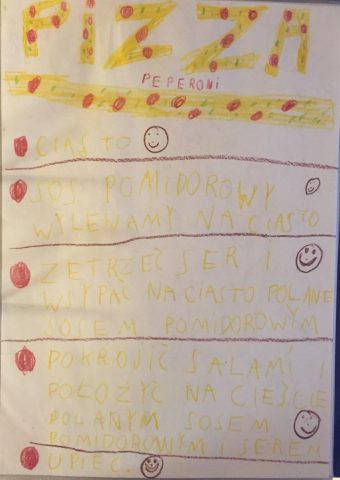 PIZZA
PEPERONI
CIASTO
SOS POMIDOROWY
WYLEWAMY NA CIASTO
ZETRZEĆ SER I
WSYPAĆ NA CIASTO POLANE
SOSEM POMIDOROWYM
POKROJIĆ SALAMI I
POŁOŻYĆ NA CIEŚCIE
POLANYM SOSEM
POMIDOROWYM I SEREM
UPIEC.